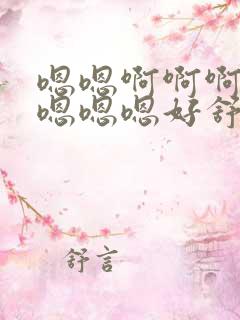 嗯嗯啊啊啊
嗯嗯嗯好舒
舒言